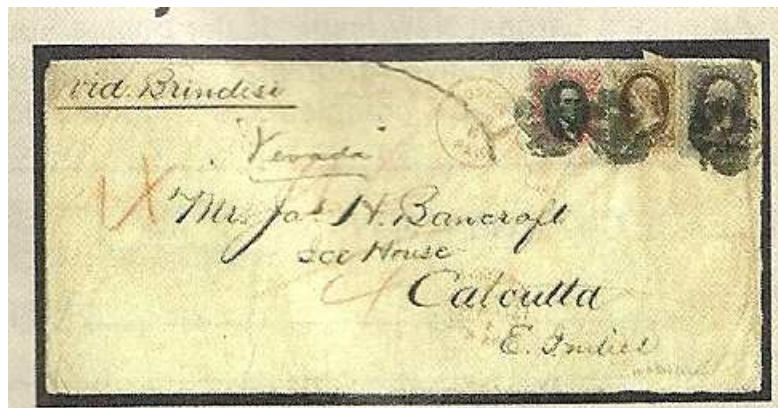 via Brindisi
"Nevada"
Mrs Jas H. Bancroft
Ice House
Calcutta
E. Indies